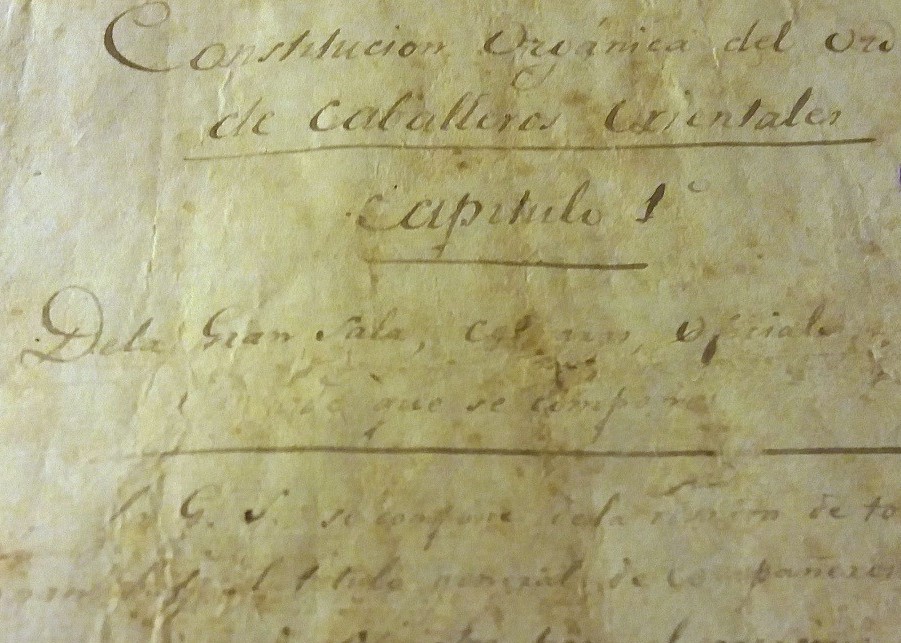 Constitucion Orgánica del Ord
de Caballeros Orientales
Capitulo 1°
Dela Gran Sala,
que se compone
G. S. se compone dela reunion de to
el titulo general de compañeros